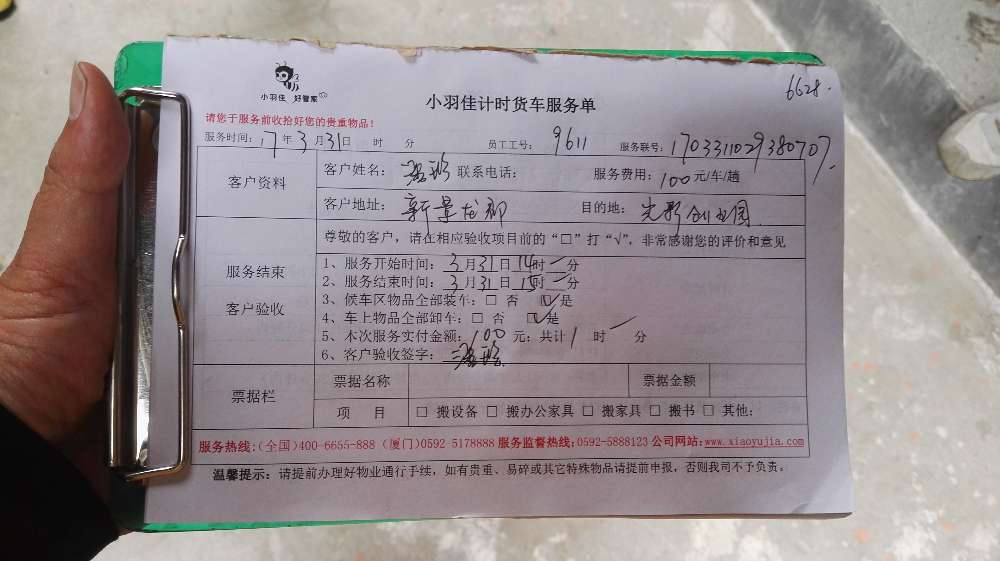 小羽佳 好管家
6628.
小羽佳计时货车服务单
请您于服务前收拾好您的贵重物品！
服务时间：17年3月31日 时 分 员工工号：9611 服务联号：1703311029380707
客户资料
客户姓名： 联系电话： 服务费用：100元/车/趟
客户地址：新景龙郡 目的地：光彩创业园
尊敬的客户，请在相应验收项目前的“□”打“√”，非常感谢您的评价和意见
服务结束
客户验收
1、服务开始时间：3月31日14时一分
2、服务结束时间：3月31日15时一分
3、候车区物品全部装车：□ 否 ☑是
4、车上物品全部卸车：□ 否 ☑是
5、本次服务实付金额：100元；共计1时一分
6、客户验收签字：
票据栏
票据名称 票据金额
项 目 □ 搬设备 □ 搬办公家具 □ 搬家具 □ 搬书 □ 其他：
服务热线：(全国)400-6655-888 (厦门)0592 5178888 服务监督热线：0592-5888123 公司网站：www.xiaoyujia.com
温馨提示：请提前办理好物业通行手续，如有贵重、易碎或其它特殊物品请提前申报，否则我司不予负责。